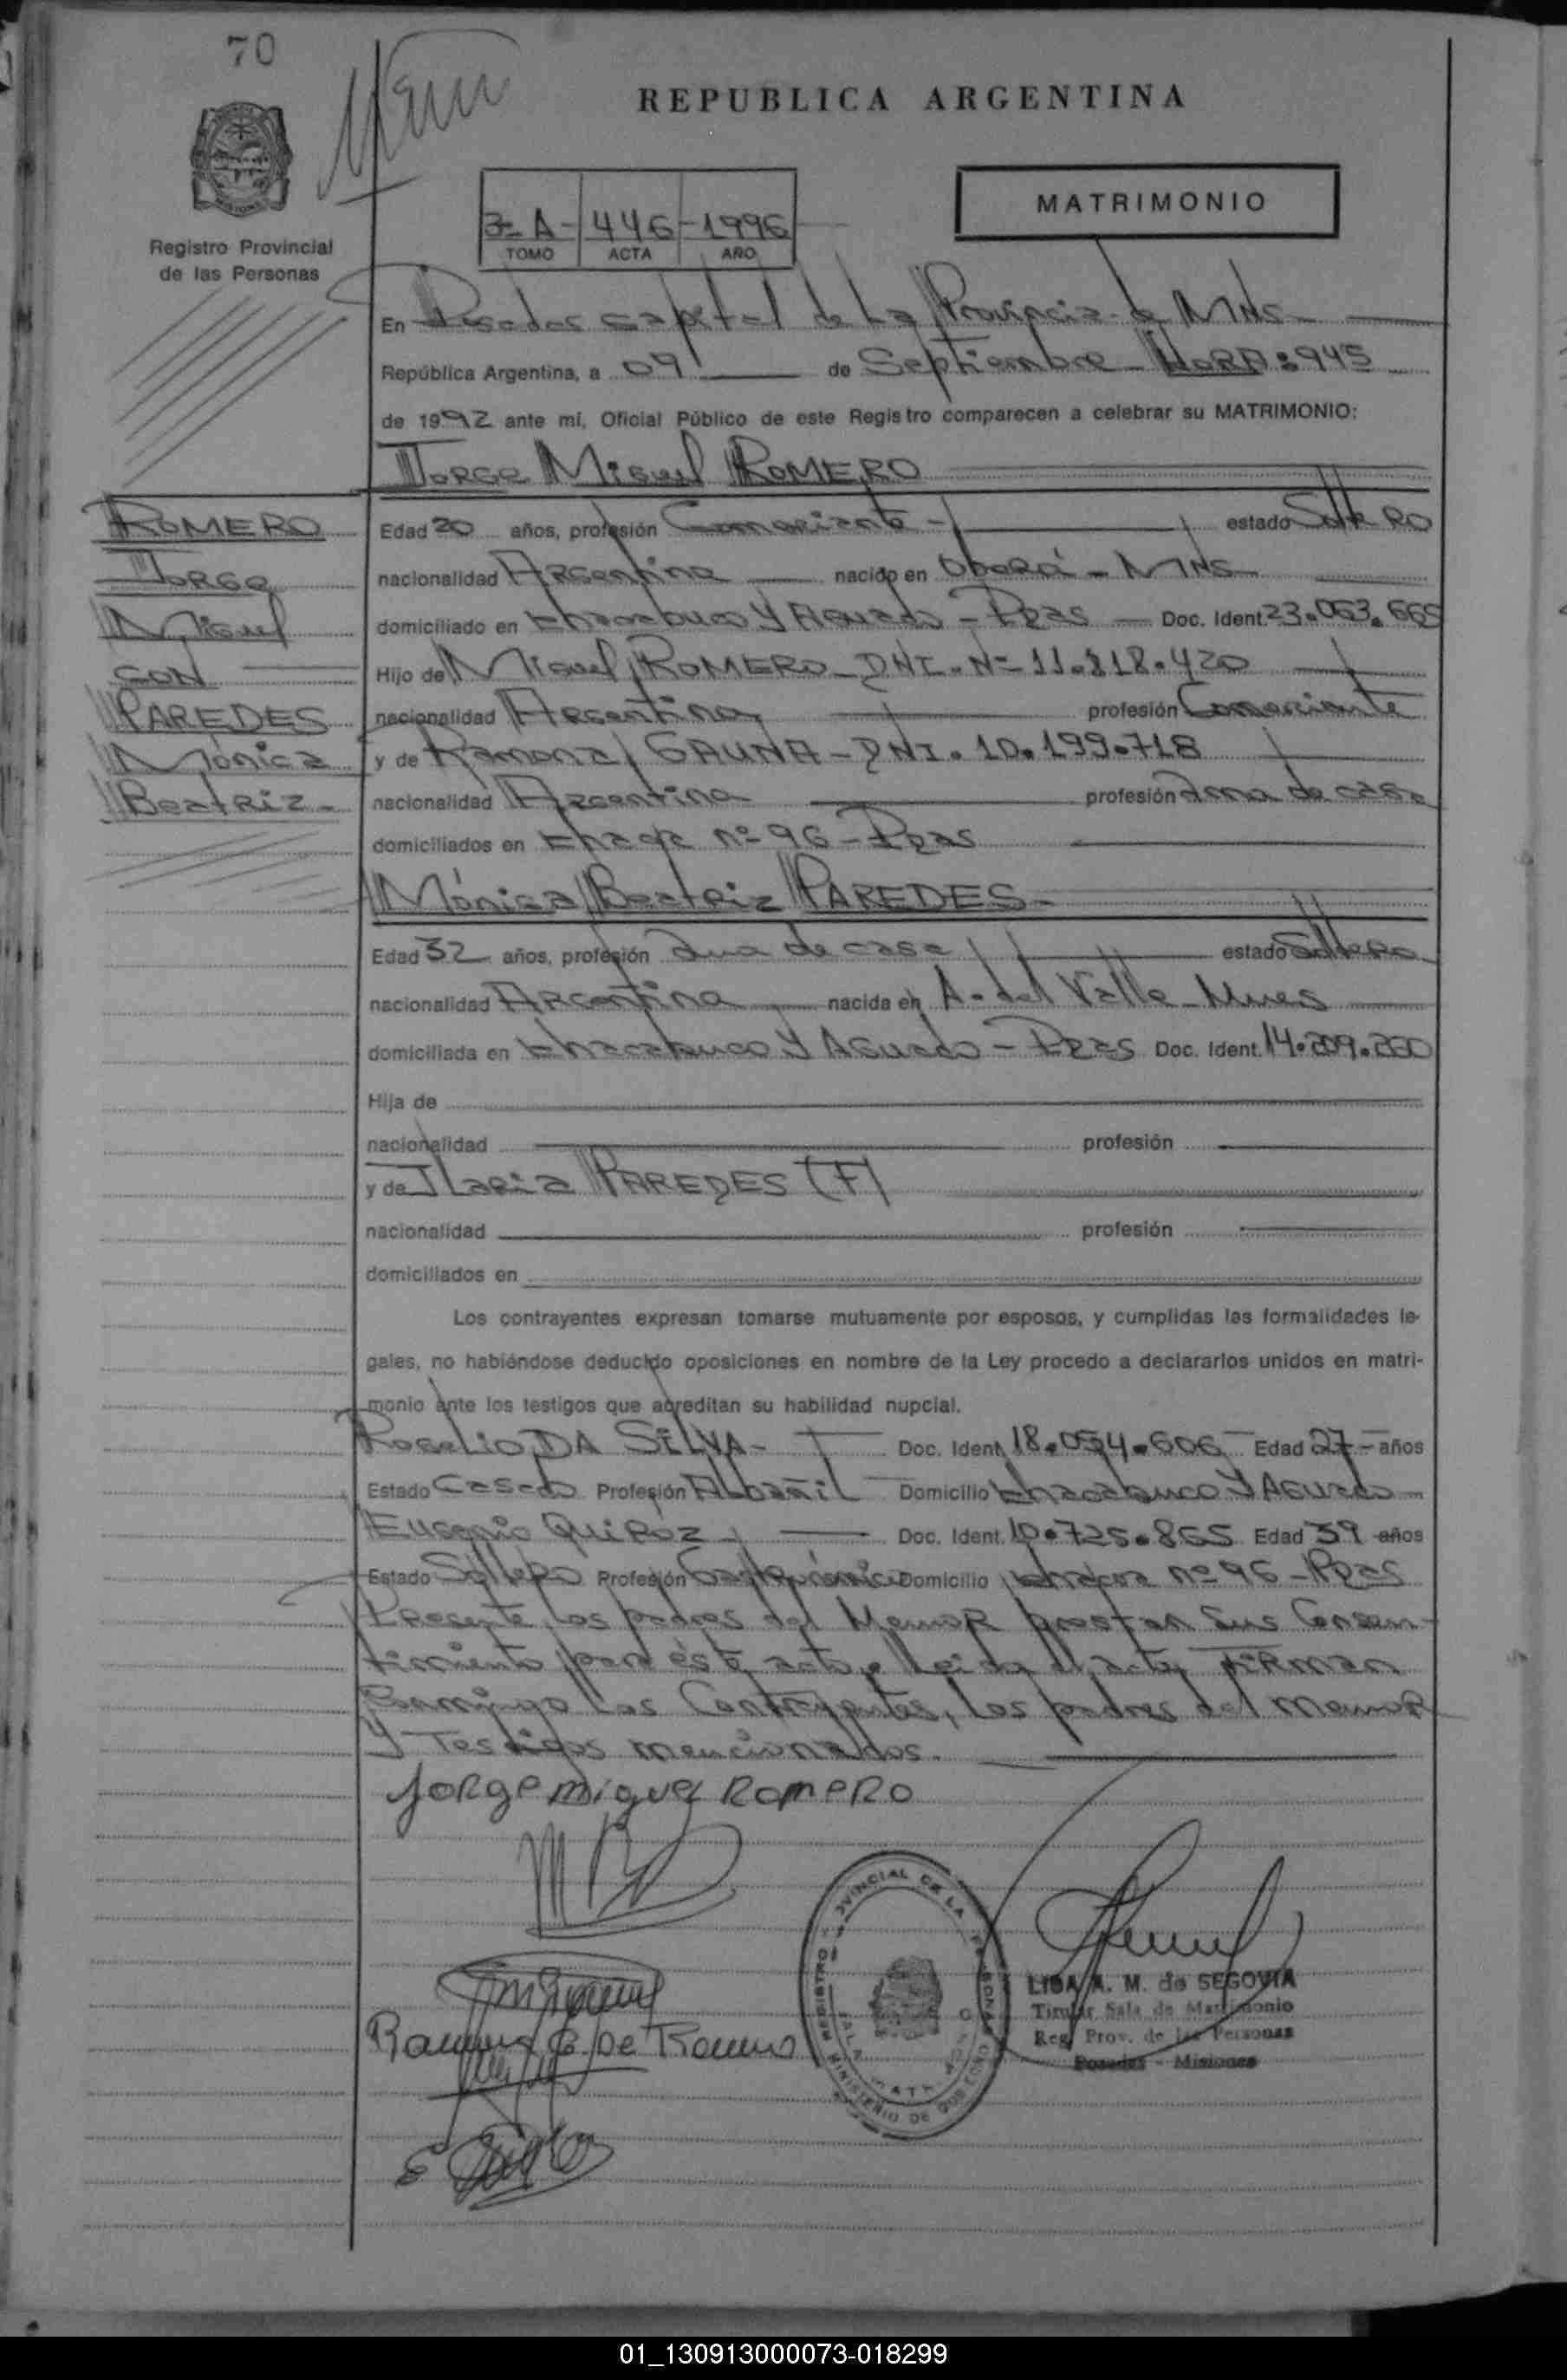 70
REPUBLICA ARGENTINA
MATRIMONIO
3-A- 446-1996
TOMO ACTA AÑO
Registro Provincial
de las Personas
En Posadas capital de La Provincia de Mnes
República Argentina, a 09 de Septiembre HORA: 945
de 1992 ante mí, Oficial Público de este Registro comparecen a celebrar su MATRIMONIO:
Jorge Miguel ROMERO
ROMERO
Jorge
Miguel
CON
PAREDES
Mónica
Beatriz
Edad 20 años, profesión Comerciante estado Soltero
nacionalidad Argentina nacido en Oberá - Mnes
domiciliado en Chacabuco Y Aguado - Pdas Doc. Ident. 23.053.665
Hijo de Miguel ROMERO DNI. Nº 11.818.420
nacionalidad Argentina profesión Comerciante
y de Ramona GAUNA - DNI. 10.199.718
nacionalidad Argentina profesión Ama de casa
domiciliados en nº 96 - Pdas
Mónica Beatriz PAREDES
Edad 32 años, profesión Ama de casa estado Soltera
nacionalidad Argentina nacida en A. del Valle - Mnes
domiciliada en Chacabuco Y Aguado - Pdas Doc. Ident. 14.209.260
Hija de
nacionalidad profesión
y de Ilaria PAREDES (F)
nacionalidad profesión
domiciliados en
Los contrayentes expresan tomarse mutuamente por esposos, y cumplidas las formalidades le-
gales, no habiéndose deducido oposiciones en nombre de la Ley procedo a declararlos unidos en matri-
monio ante los testigos que acreditan su habilidad nupcial.
Rogelio DA SILVA- Doc. Ident. 18.054.606 Edad 27 años
Estado Casado Profesión Albañil Domicilio Chacabuco Y Aguado
Eugenio Quiroz Doc. Ident. 10.725.865 Edad 39 años
Estado Soltero Profesión Gastronómico Domicilio nº 96 - Pdas
Presente los padres del Menor prestan Sus Consen-
timiento para éste acto. Leida el acta, FIRMAN
Conmigo Los Contrayentes, los padres del menor
Y Testigos mencionados.
Jorge Miguel Romero
Ramona G. De Romero
LIDA A. M. de SEGOVIA
Titular Sala de Matrimonio
Reg. Prov. de las Personas
Posadas - Misiones
01_130913000073-018299